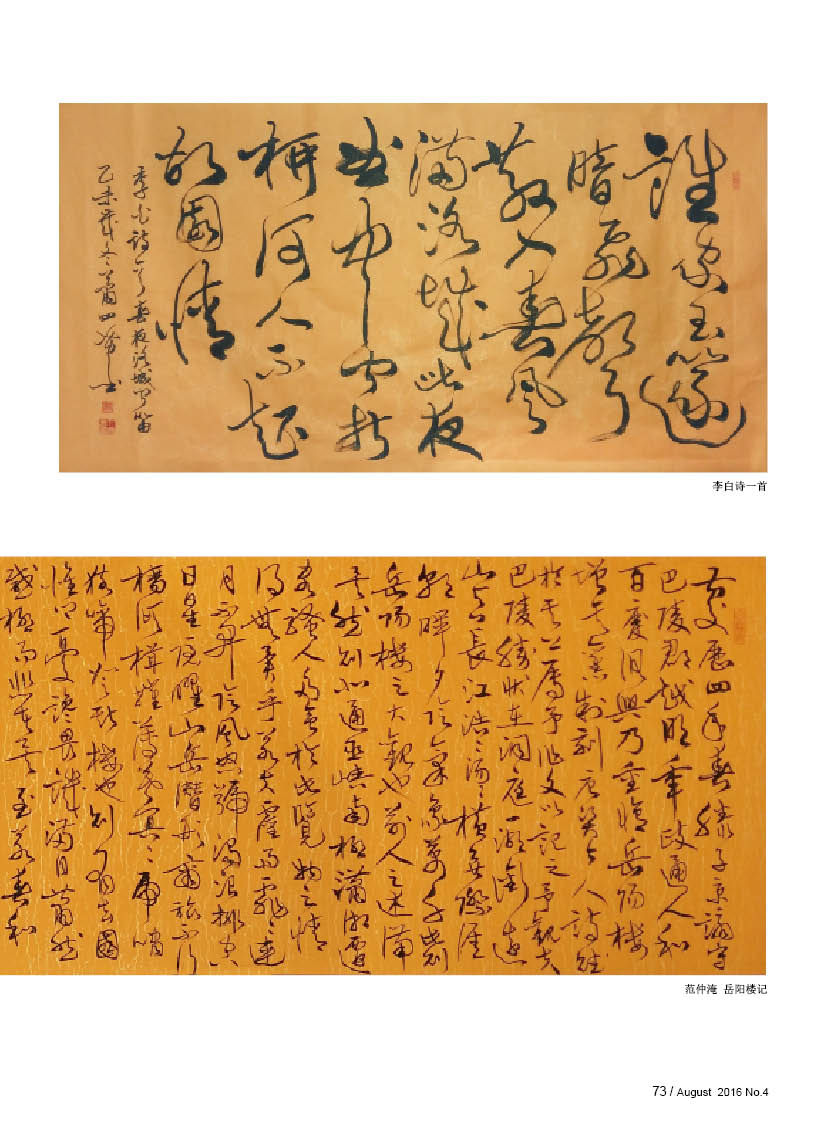 誰家玉篴
暗飛聲
散入春風
滿洛城此夜
曲中聞折
柳何人不起
故園情
李白詩一首春夜洛城聞笛
乙未歲冬蕭四書
李白诗一首
慶曆四年春滕子京謫守
巴陵郡越明年政通人和
百廢俱興乃重修岳陽樓
增其舊制刻唐賢今人詩賦
於其上屬予作文以記之予觀夫
巴陵勝狀在洞庭一湖銜遠
山吞長江浩浩湯湯橫無際涯
朝暉夕陰氣象萬千此則
岳陽樓之大觀也前人之述備
矣然則北通巫峽南極瀟湘遷
客騷人多會於此覽物之情
得無異乎若夫霪雨霏霏連
月不開陰風怒號濁浪排空
日星隱曜山岳潛形商旅不行
檣傾楫摧薄暮冥冥虎嘯
猿啼登斯樓也則有去國
懷鄉憂讒畏譏滿目蕭然
感極而悲者矣至若春和
范仲淹 岳阳楼记
73 / August 2016 No.4